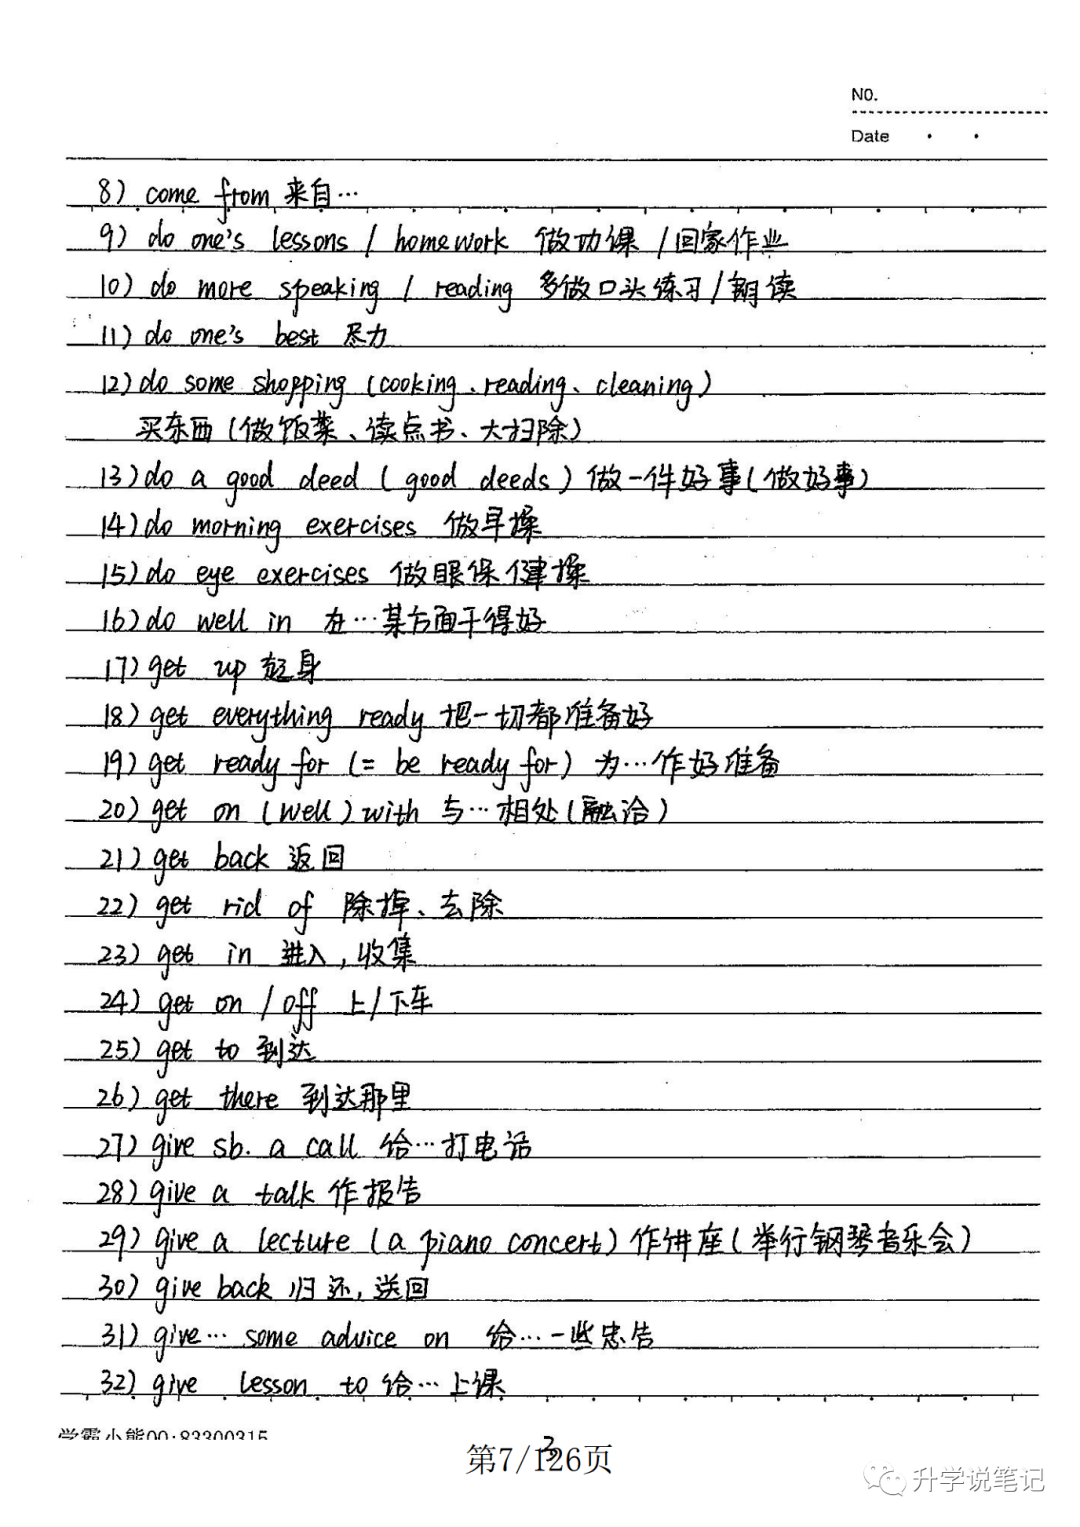 NO.
Date
8) come from 来自…
9) do one's lessons / homework 做功课 / 回家作业
10) do more speaking / reading 多做口头练习 / 朗读
11) do one's best 尽力
12) do some shopping (cooking、reading、cleaning)
买东西 (做饭菜、读点书、大扫除)
13) do a good deed ( good deeds ) 做一件好事 (做好事)
14) do morning exercises 做早操
15) do eye exercises 做眼保健操
16) do well in 在…某方面干得好
17) get up 起身
18) get everything ready 把一切都准备好
19) get ready for (= be ready for) 为…作好准备
20) get on (well) with 与…相处 (融洽)
21) get back 返回
22) get rid of 除掉、去除
23) get in 进入, 收集
24) get on / off 上/下车
25) get to 到达
26) get there 到达那里
27) give sb. a call 给…打电话
28) give a talk 作报告
29) give a lecture (a piano concert) 作讲座 (举行钢琴音乐会)
30) give back 归还, 送回
31) give… some advice on 给…一些忠告
32) give lesson to 给…上课
学霸小熊QQ:83300315
3
第7/126页
升学说笔记